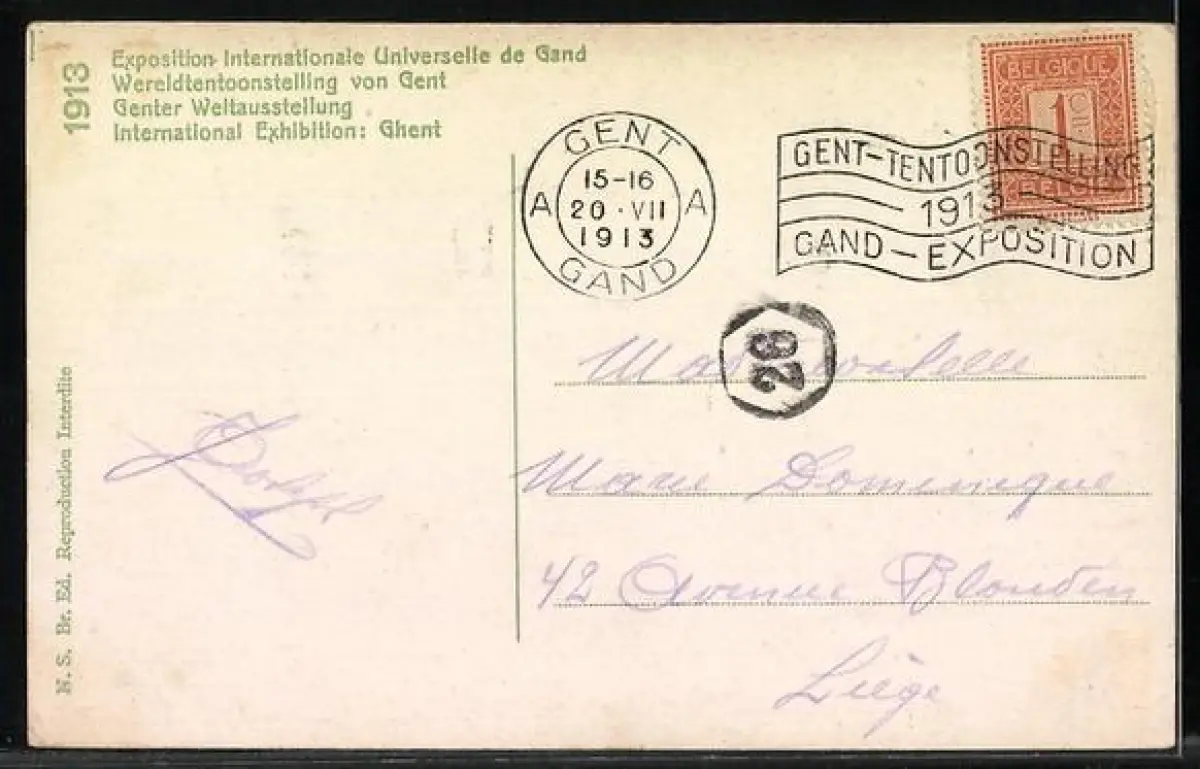 1913
Exposition Internationale Universelle de Gand
Wereldtentoonstelling von Gent
Genter Weltausstellung
International Exhibition: Ghent
GENT
15-16
A 20 · VII A
1913
GAND
BELGIQUE
1C
BELGIË
GENT-TENTOONSTELLING
1913
GAND-EXPOSITION
26
Mademoiselle
Marie Dominique
42 Avenue Blonden
Liège
N. S. Br. Ed. Reproduction Interdite